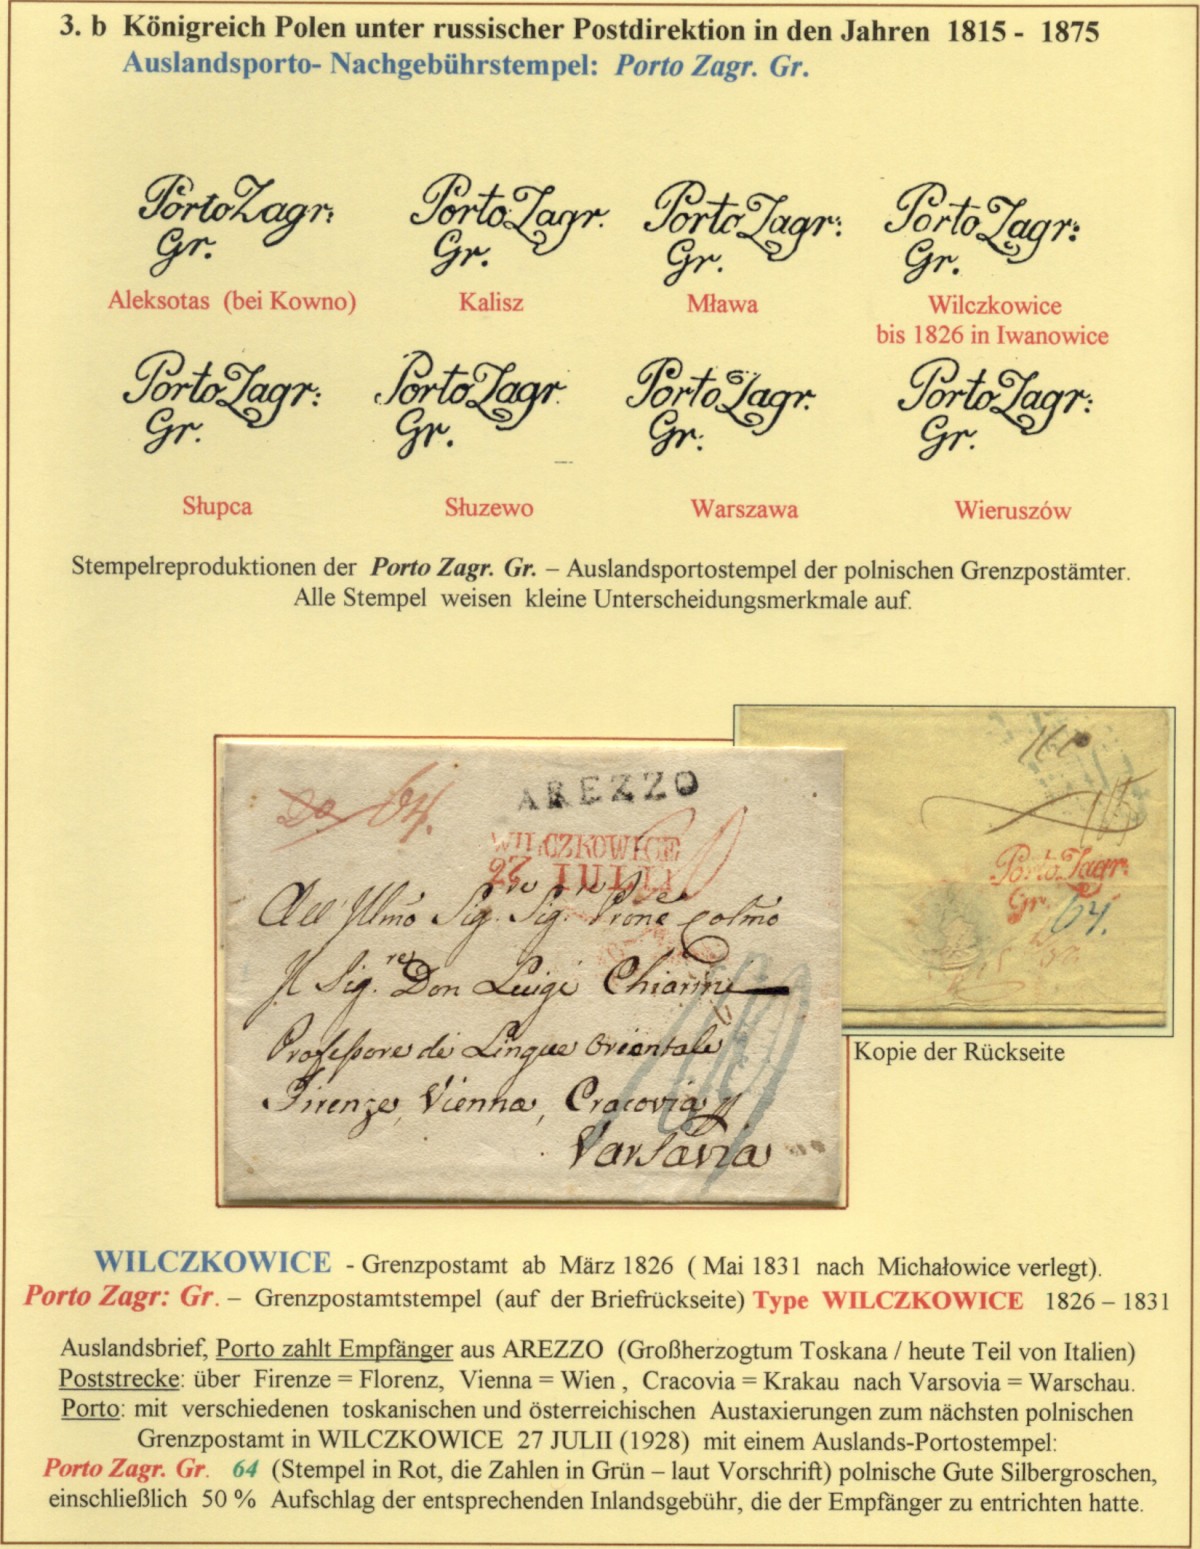 3. b Königreich Polen unter russischer Postdirektion in den Jahren 1815 - 1875
Auslandsporto- Nachgebührstempel: Porto Zagr. Gr.
Porto Zagr:
Gr.
Porto Zagr.
Gr.
Porto Zagr:
Gr.
Porto Zagr:
Gr.
Aleksotas (bei Kowno)
Kalisz
Mława
Wilczkowice
bis 1826 in Iwanowice
Porto Zagr:
Gr.
Porto Zagr.
Gr.
Porto Zagr.
Gr:
Porto Zagr:
Gr.
Słupca
Słuzewo
Warszawa
Wieruszów
Stempelreproduktionen der Porto Zagr. Gr. – Auslandsportostempel der polnischen Grenzpostämter.
Alle Stempel weisen kleine Unterscheidungsmerkmale auf.
64.
AREZZO
WILCZKOWICE
27 IULII
All Illmo Sig.re Sig.re Prone Colmo
Il Sig.re Don Luigi Chiarini
Professore di Lingue Orientale
Firenze, Vienna, Cracovia
Varsavia
Porto Zagr:
Gr. 64.
Kopie der Rückseite
WILCZKOWICE - Grenzpostamt ab März 1826 ( Mai 1831 nach Michałowice verlegt).
Porto Zagr: Gr. – Grenzpostamtstempel (auf der Briefrückseite) Type WILCZKOWICE 1826 – 1831
Auslandsbrief, Porto zahlt Empfänger aus AREZZO (Großherzogtum Toskana / heute Teil von Italien)
Poststrecke: über Firenze = Florenz, Vienna = Wien , Cracovia = Krakau nach Varsovia = Warschau.
Porto: mit verschiedenen toskanischen und österreichischen Austaxierungen zum nächsten polnischen
Grenzpostamt in WILCZKOWICE 27 JULII (1928) mit einem Auslands-Portostempel:
Porto Zagr. Gr. 64 (Stempel in Rot, die Zahlen in Grün – laut Vorschrift) polnische Gute Silbergroschen,
einschließlich 50 % Aufschlag der entsprechenden Inlandsgebühr, die der Empfänger zu entrichten hatte.